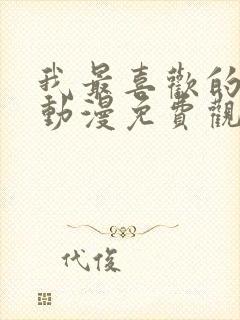 我最喜歡的
動漫免費觀
代俊